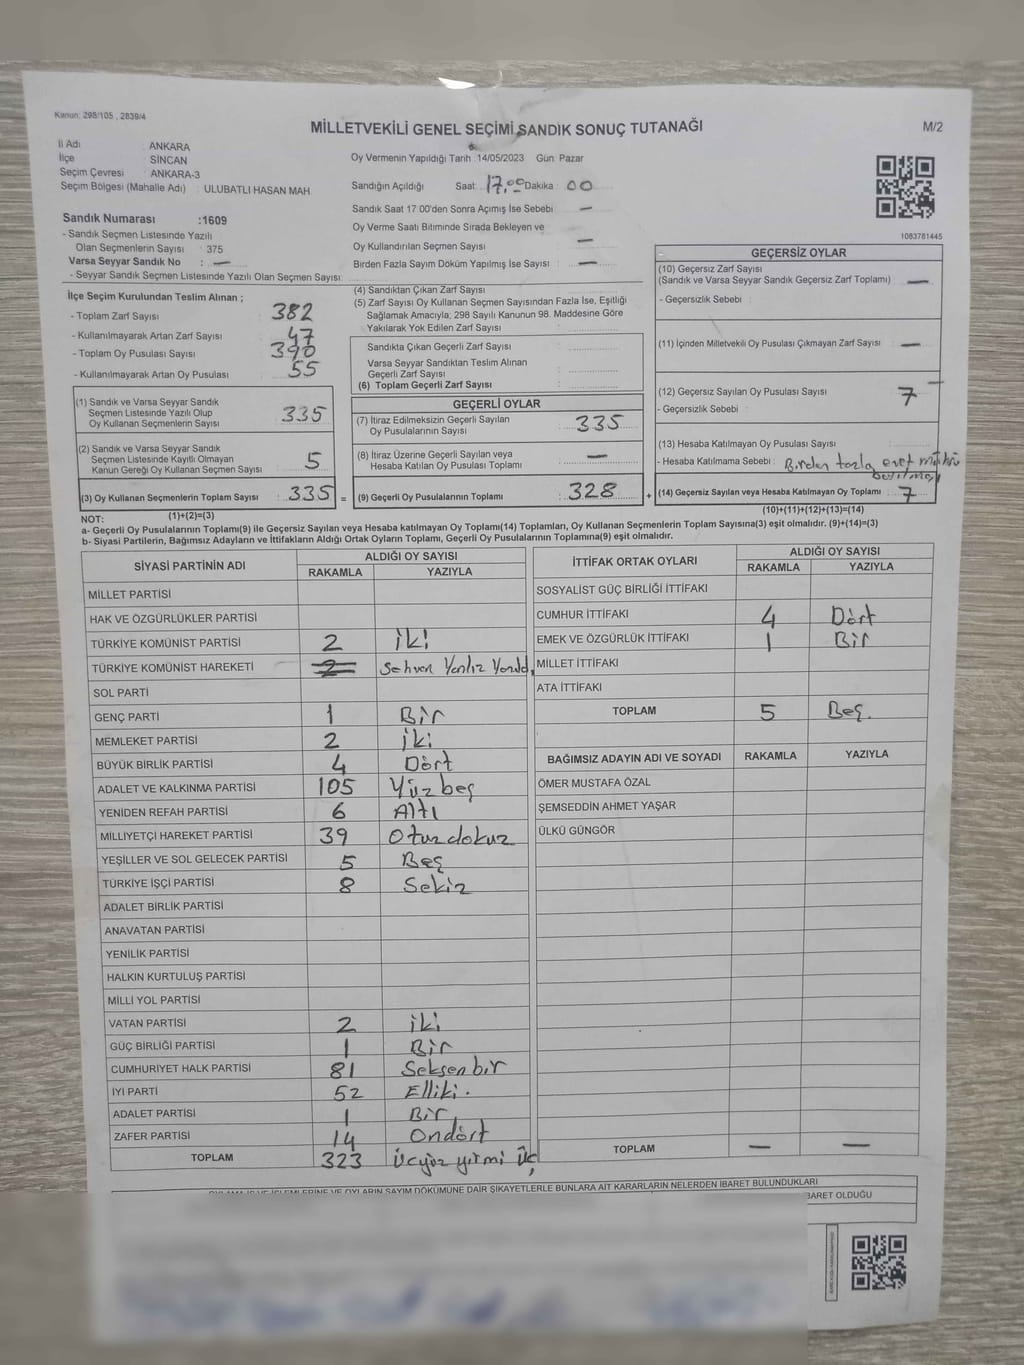 Kanun: 298/105 , 2839/4
MİLLETVEKİLİ GENEL SEÇİMİ SANDIK SONUÇ TUTANAĞI
M/2
İl Adı : ANKARA
İlçe : SİNCAN
Seçim Çevresi : ANKARA-3
Seçim Bölgesi (Mahalle Adı) : ULUBATLI HASAN MAH
Sandık Numarası :1609
- Sandık Seçmen Listesinde Yazılı
Olan Seçmenlerin Sayısı : 375
Varsa Seyyar Sandık No : —
- Seyyar Sandık Seçmen Listesinde Yazılı Olan Seçmen Sayısı:
Oy Vermenin Yapıldığı Tarih :14/05/2023 Gün: Pazar
Sandığın Açıldığı Saat: 17.00 Dakika : 00
Sandık Saat 17 00'den Sonra Açımış İse Sebebi : —
Oy Verme Saati Bitiminde Sırada Bekleyen ve
Oy Kullandırılan Seçmen Sayısı : —
Birden Fazla Sayım Döküm Yapılmış İse Sayısı : —
1083781445
İlçe Seçim Kurulundan Teslim Alınan ;
- Toplam Zarf Sayısı : 382
- Kullanılmayarak Artan Zarf Sayısı : 47
- Toplam Oy Pusulası Sayısı : 390
- Kullanılmayarak Artan Oy Pusulası : 55
(1) Sandık ve Varsa Seyyar Sandık
Seçmen Listesinde Yazılı Olup
Oy Kullanan Seçmenlerin Sayısı : 335
(2) Sandık ve Varsa Seyyar Sandık
Seçmen Listesinde Kayıtlı Olmayan
Kanun Gereği Oy Kullanan Seçmen Sayısı : 5
(3) Oy Kullanan Seçmenlerin Toplam Sayısı : 335 =
(1)+(2)=(3)
(4) Sandıktan Çıkan Zarf Sayısı :
(5) Zarf Sayısı Oy Kullanan Seçmen Sayısından Fazla İse, Eşitliği
Sağlamak Amacıyla, 298 Sayılı Kanunun 98. Maddesine Göre
Yakılarak Yok Edilen Zarf Sayısı :
Sandıkta Çıkan Geçerli Zarf Sayısı :
Varsa Seyyar Sandıktan Teslim Alınan
Geçerli Zarf Sayısı :
(6) Toplam Geçerli Zarf Sayısı :
GEÇERLİ OYLAR
(7) İtiraz Edilmeksizin Geçerli Sayılan
Oy Pusulalarının Sayısı : 335
(8) İtiraz Üzerine Geçerli Sayılan veya
Hesaba Katılan Oy Pusulası Toplamı : —
(9) Geçerli Oy Pusulalarının Toplamı : 328 +
GEÇERSİZ OYLAR
(10) Geçersiz Zarf Sayısı
(Sandık ve Varsa Seyyar Sandık Geçersiz Zarf Toplamı) : —
- Geçersizlik Sebebi :
(11) İçinden Milletvekili Oy Pusulası Çıkmayan Zarf Sayısı : —
(12) Geçersiz Sayılan Oy Pusulası Sayısı : 7
- Geçersizlik Sebebi :
(13) Hesaba Katılmayan Oy Pusulası Sayısı :
- Hesaba Katılmama Sebebi : Birden fazla evet mührü
(14) Geçersiz Sayılan veya Hesaba Katılmayan Oy Toplamı : 7
(10)+(11)+(12)+(13)=(14)
NOT:
a- Geçerli Oy Pusulalarının Toplamı(9) ile Geçersiz Sayılan veya Hesaba katılmayan Oy Toplamı(14) Toplamları, Oy Kullanan Seçmenlerin Toplam Sayısına(3) eşit olmalıdır. (9)+(14)=(3)
b- Siyasi Partilerin, Bağımsız Adayların ve İttifakların Aldığı Ortak Oyların Toplamı, Geçerli Oy Pusulalarının Toplamına(9) eşit olmalıdır.
SİYASİ PARTİNİN ADI ALDIĞI OY SAYISI
RAKAMLA YAZIYLA
MİLLET PARTİSİ
HAK VE ÖZGÜRLÜKLER PARTİSİ
TÜRKİYE KOMÜNİST PARTİSİ 2 iki
TÜRKİYE KOMÜNİST HAREKETİ 2 Sehven Yanlız Yazıldı
SOL PARTİ
GENÇ PARTİ 1 Bir
MEMLEKET PARTİSİ 2 iki
BÜYÜK BİRLİK PARTİSİ 4 Dört
ADALET VE KALKINMA PARTİSİ 105 Yüzbeş
YENİDEN REFAH PARTİSİ 6 Altı
MİLLİYETÇİ HAREKET PARTİSİ 39 Otuzdokuz
YEŞİLLER VE SOL GELECEK PARTİSİ 5 Beş
TÜRKİYE İŞÇİ PARTİSİ 8 Sekiz
ADALET BİRLİK PARTİSİ
ANAVATAN PARTİSİ
YENİLİK PARTİSİ
HALKIN KURTULUŞ PARTİSİ
MİLLİ YOL PARTİSİ
VATAN PARTİSİ 2 iki
GÜÇ BİRLİĞİ PARTİSİ 1 Bir
CUMHURİYET HALK PARTİSİ 81 Seksenbir
İYİ PARTİ 52 Elliki.
ADALET PARTİSİ 1 Bir
ZAFER PARTİSİ 14 Ondört
TOPLAM 323 Üçyüz yirmi üç
İTTİFAK ORTAK OYLARI ALDIĞI OY SAYISI
RAKAMLA YAZIYLA
SOSYALİST GÜÇ BİRLİĞİ İTTİFAKI
CUMHUR İTTİFAKI 4 Dört
EMEK VE ÖZGÜRLÜK İTTİFAKI 1 Bir
MİLLET İTTİFAKI
ATA İTTİFAKI
TOPLAM 5 Beş.
BAĞIMSIZ ADAYIN ADI VE SOYADI RAKAMLA YAZIYLA
ÖMER MUSTAFA ÖZAL
ŞEMSEDDİN AHMET YAŞAR
ÜLKÜ GÜNGÖR
TOPLAM — —
OYLAMA İŞ VE İŞLEMLERİNE VE OYLARIN SAYIM DÖKÜMÜNE DAİR ŞİKAYETLERLE BUNLARA AİT KARARLARIN NELERDEN İBARET BULUNDUKLARI
BARET OLDUĞU